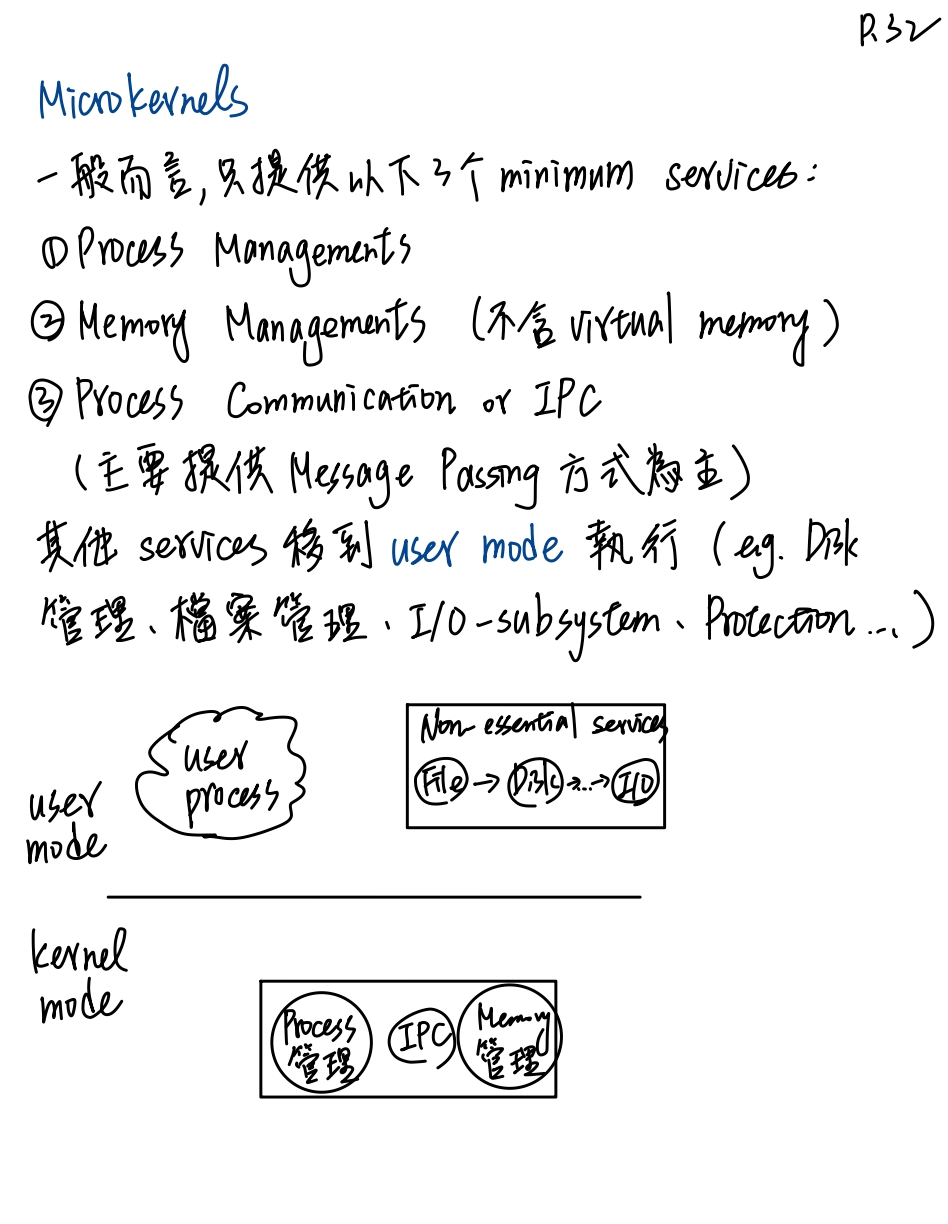 P.32
Microkernels
一般而言,只提供以下3个 minimum services:
① Process Managements
② Memory Managements (不含 virtual memory)
③ Process Communication or IPC
(主要提供 Message Passing 方式為主)
其他 services 移到 user mode 執行 (e.g. Disk
管理、檔案管理、I/O-subsystem、Protection...)
user
process
Non-essential services
File → Disk →...→ I/O
user
mode
kernel
mode
Process
管理
IPC
Memory
管理